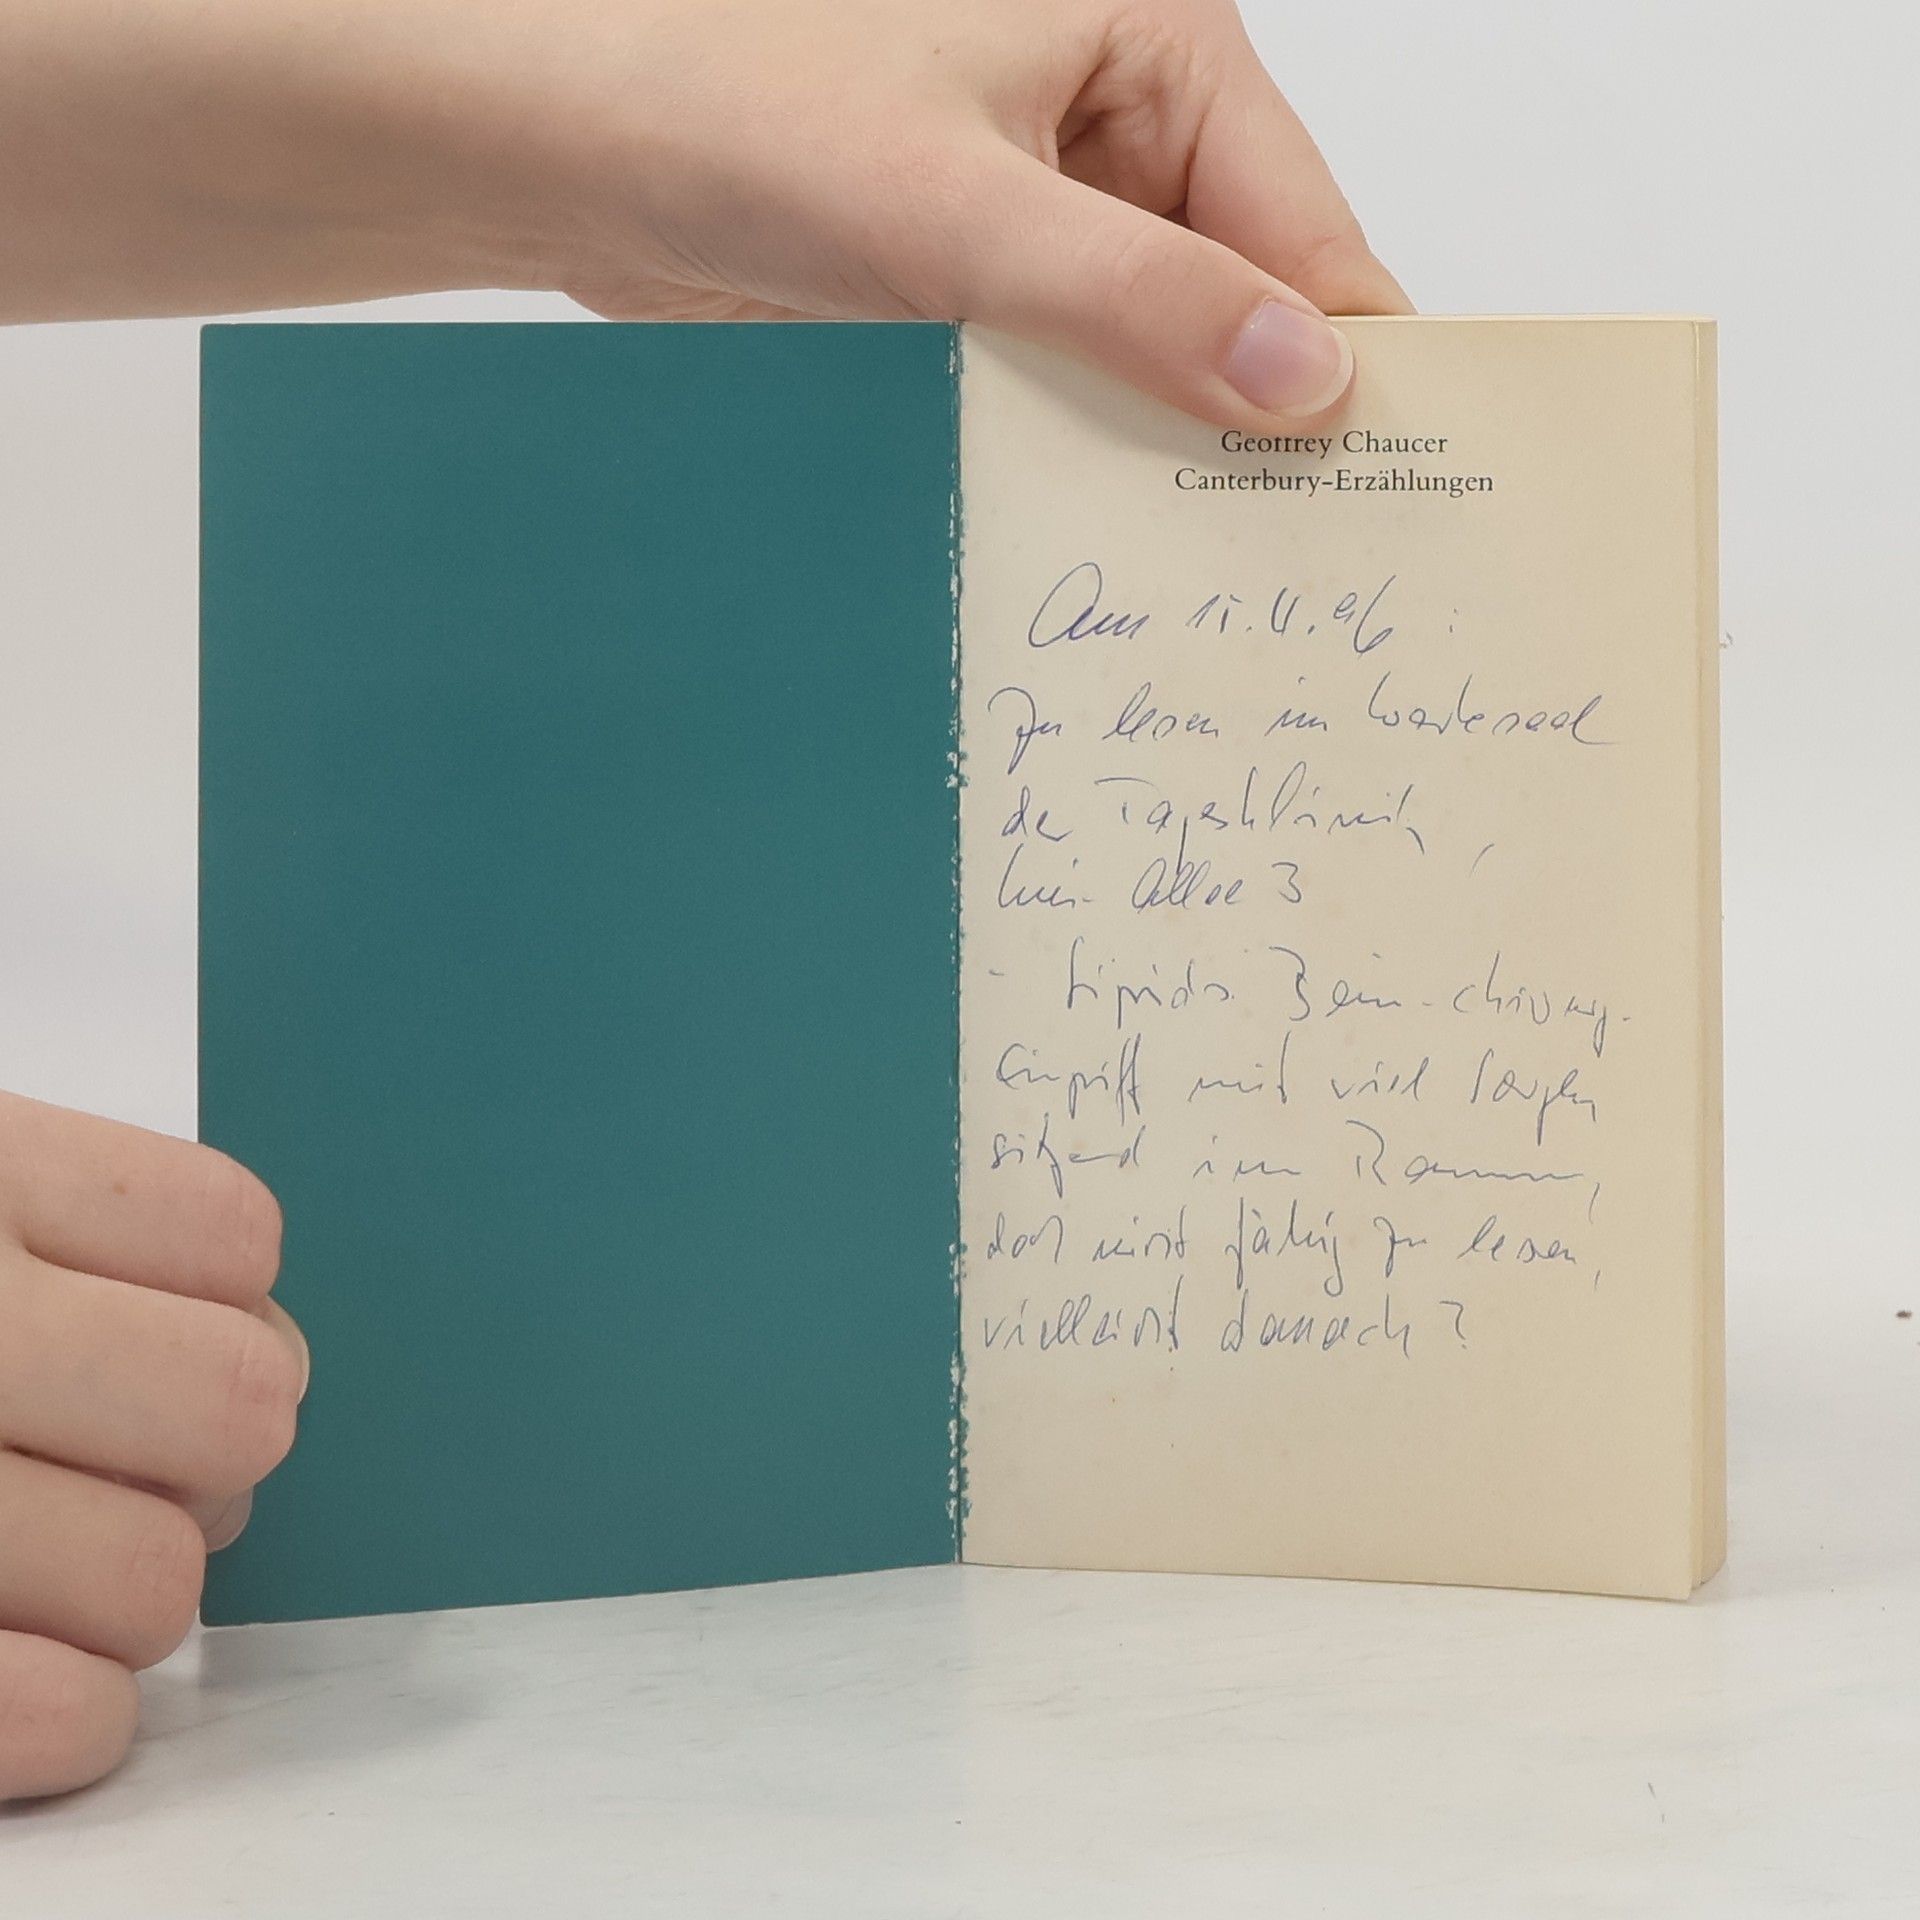 Geoffrey Chaucer
Canterbury-Erzählungen
Am 15. 4. 96 :
Zu lesen im Wartesaal
der Tagesklinik,
Allee 3
- Bein-chirurg.
Eingriff mit viel Sorgen
sitzend im Raum,
doch nicht fähig zu lesen,
vielleicht danach ?